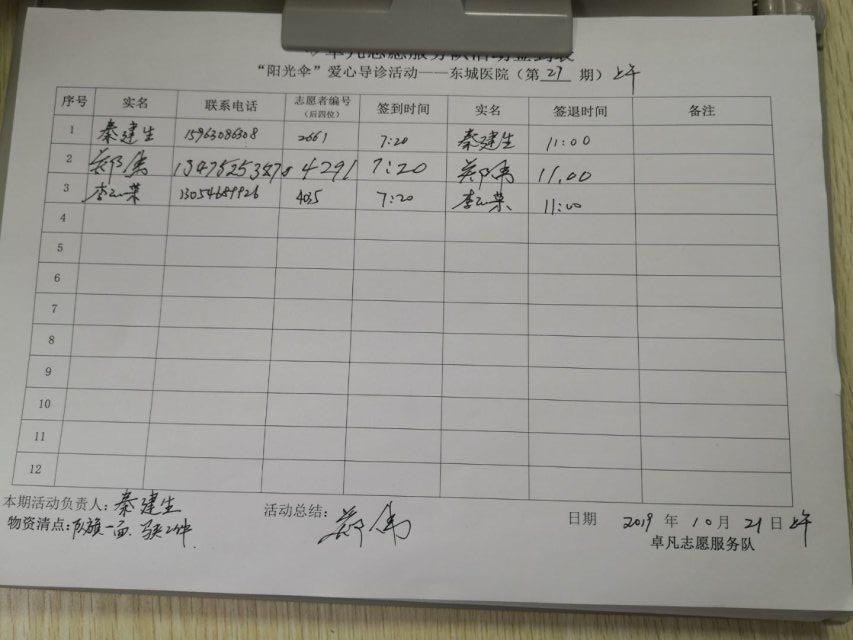 卓凡志愿服务队活动签到表
“阳光伞”爱心导诊活动——东城医院（第27期）上午
序号 实名 联系电话 志愿者编号（后四位） 签到时间 实名 签退时间 备注
1 秦建生 15963086308 2661 7:20 秦建生 11:00
2 郑伟 4291 7:20 郑伟 11.00
3 13054689926 4035 7:20 11:00
4
5
6
7
8
9
10
11
12
本期活动负责人：秦建生 活动总结：郑伟 日期 2019年10月21日上午
物资清点：队旗一面、 卓凡志愿服务队